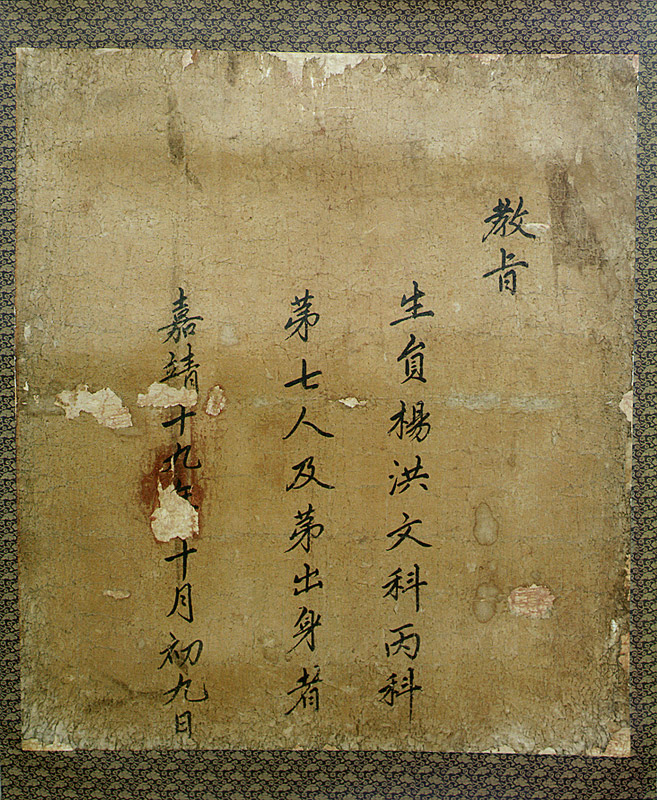 教旨
生員楊洪文科丙科
第七人及第出身者
嘉靖十九年十月初九日